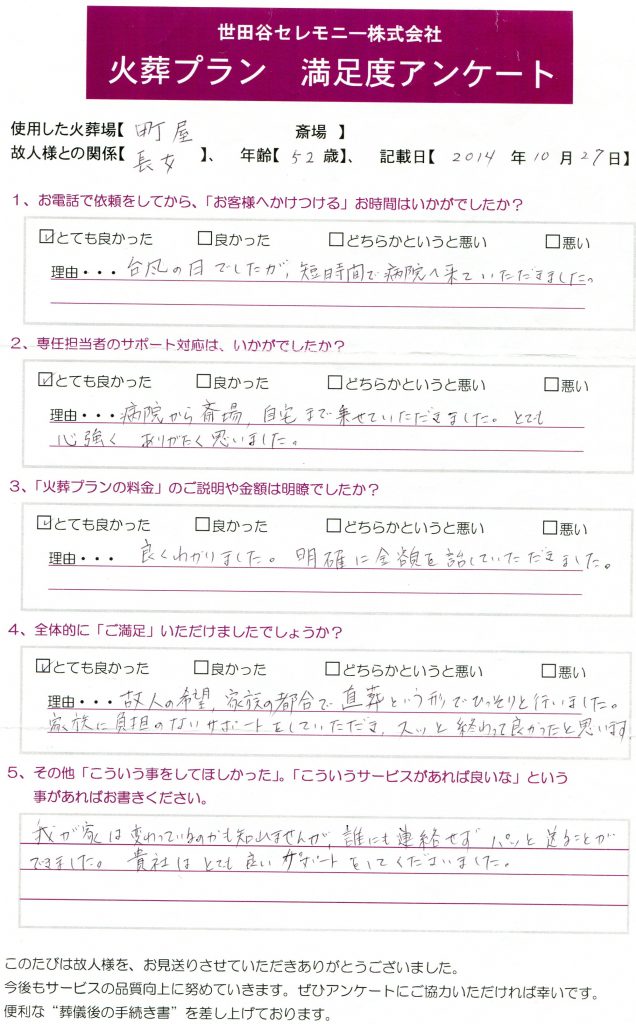 世田谷セレモニー株式会社
火葬プラン 満足度アンケート
使用した火葬場【 町屋 斎場 】
故人様との関係【 長女 】、 年齢【 52 歳】、 記載日【 2014 年 10 月 27 日】
1、お電話で依頼をしてから、「お客様へかけつける」お時間はいかがでしたか？
☑とても良かった □良かった □どちらかというと悪い □悪い
理由・・・ 台風の日でしたが、短時間で病院へ来ていただきました。
2、専任担当者のサポート対応は、いかがでしたか？
☑とても良かった □良かった □どちらかというと悪い □悪い
理由・・・病院から斎場、自宅まで乗せていただきました。とても
心強く ありがたく思いました。
3、「火葬プランの料金」のご説明や金額は明瞭でしたか？
☑とても良かった □良かった □どちらかというと悪い □悪い
理由・・・ 良くわかりました。 明確に金額を話していただきました。
4、全体的に「ご満足」いただけましたでしょうか？
☑とても良かった □良かった □どちらかというと悪い □悪い
理由・・・故人の希望、家族の都合で直葬という形でひっそりと行いました。
家族に負担のないサポートをしていただき、スッと終わって良かったと思います。
5、その他「こういう事をしてほしかった」。「こういうサービスがあれば良いな」という
事があればお書きください。
我が家は変わっているのかも知れませんが、誰にも連絡せず パッと送ることが
できました。 貴社はとても良いサポートをしてくださいました。
このたびは故人様を、お見送りさせていただきありがとうございました。
今後もサービスの品質向上に努めていきます。ぜひアンケートにご協力いただければ幸いです。
便利な“葬儀後の手続き書”を差し上げております。